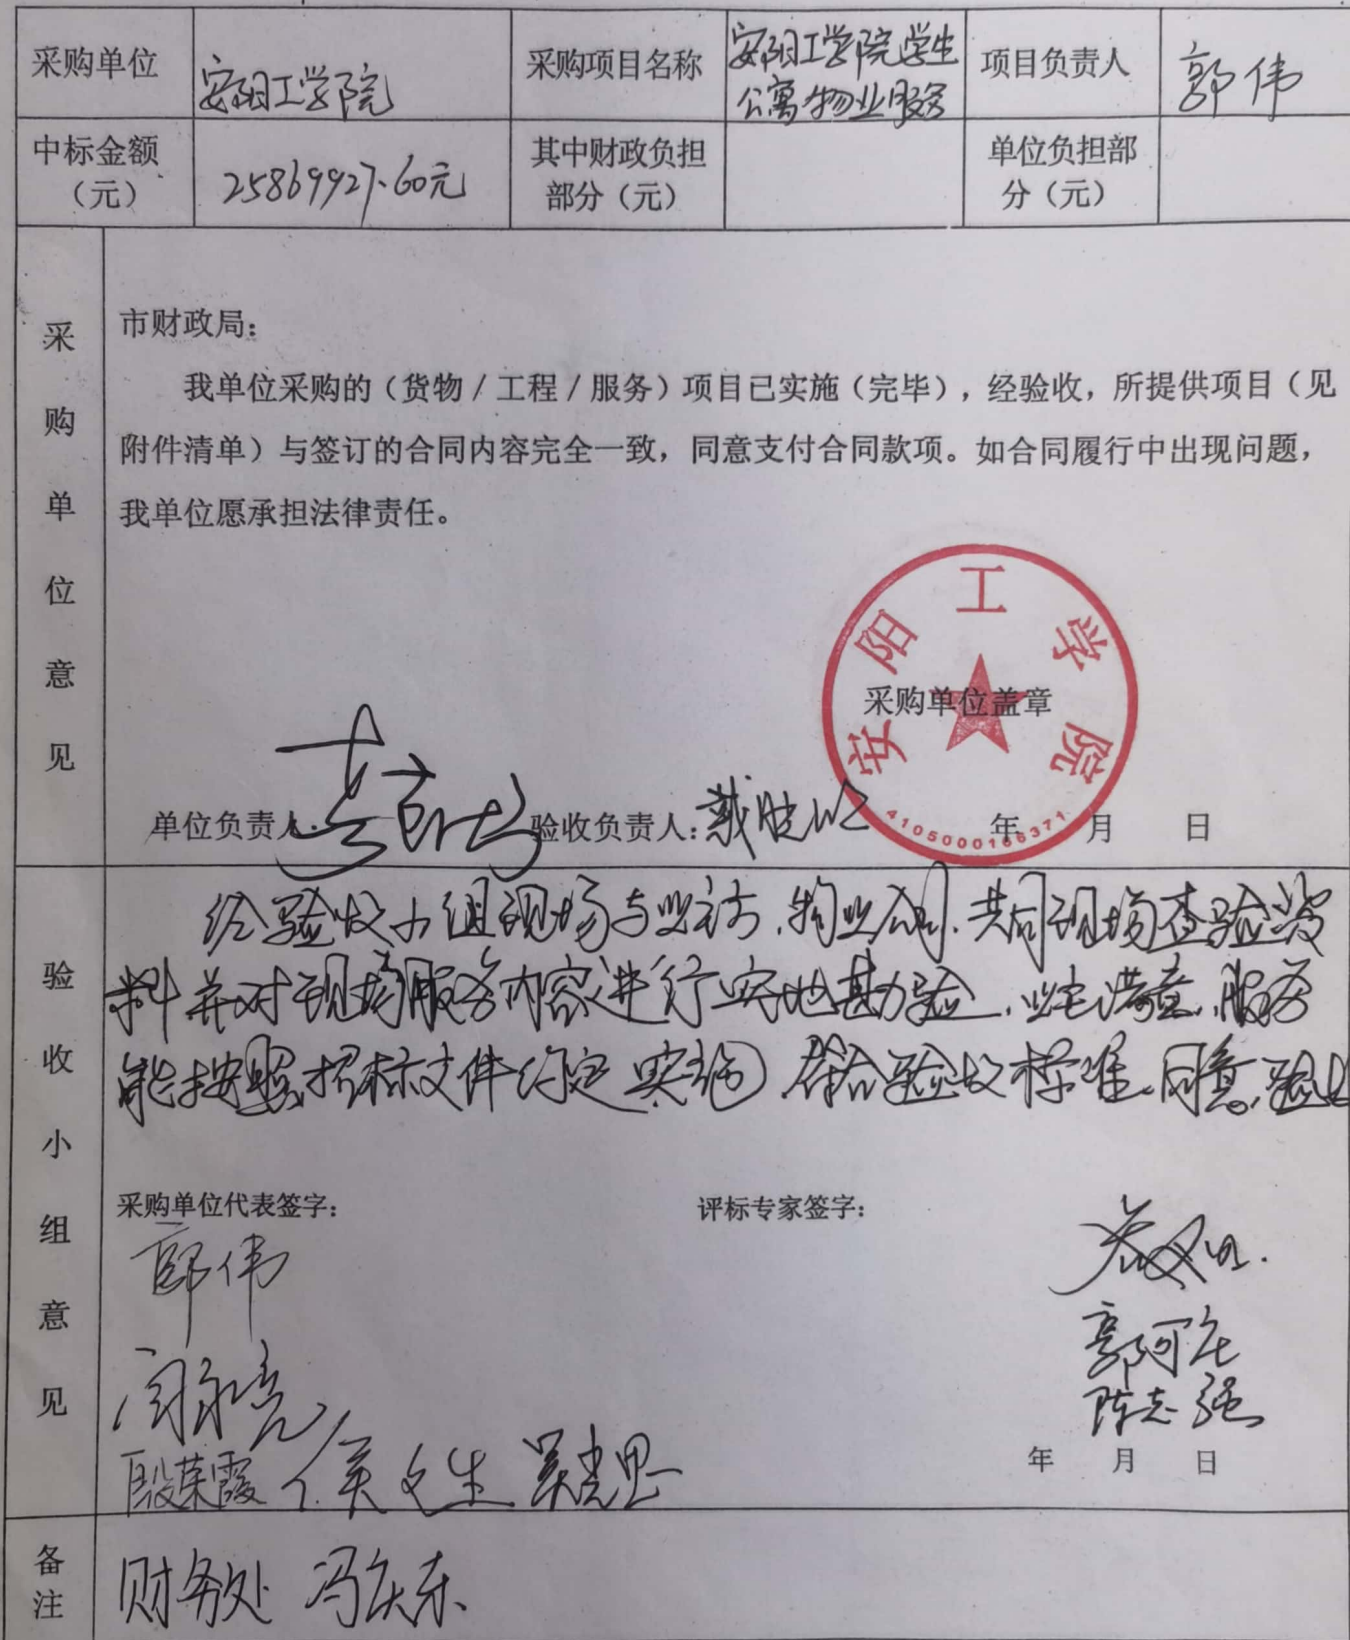 采购单位 安阳工学院 采购项目名称 安阳工学院学生公寓物业服务 项目负责人 郭伟
中标金额（元） 25869927.60元 其中财政负担部分（元） 单位负担部分（元）
采购单位意见
市财政局：
我单位采购的（货物/工程/服务）项目已实施（完毕），经验收，所提供项目（见
附件清单）与签订的合同内容完全一致，同意支付合同款项。如合同履行中出现问题，
我单位愿承担法律责任。
安阳工学院
采购单位盖章
4105000106371
单位负责人： 验收负责人： 年 月 日
验收小组意见
经验收小组现场与 物业公司、共同现场查验资
料并对现场服务内容进行实地勘验，业主满意，服务
能按照招标文件约定实施，符合验收标准，同意验收
采购单位代表签字： 评标专家签字：
郭伟
闫永亮 郭阿庄
陈志强
殷荣霞 侯文生
年 月 日
备注 财务处 冯庆东